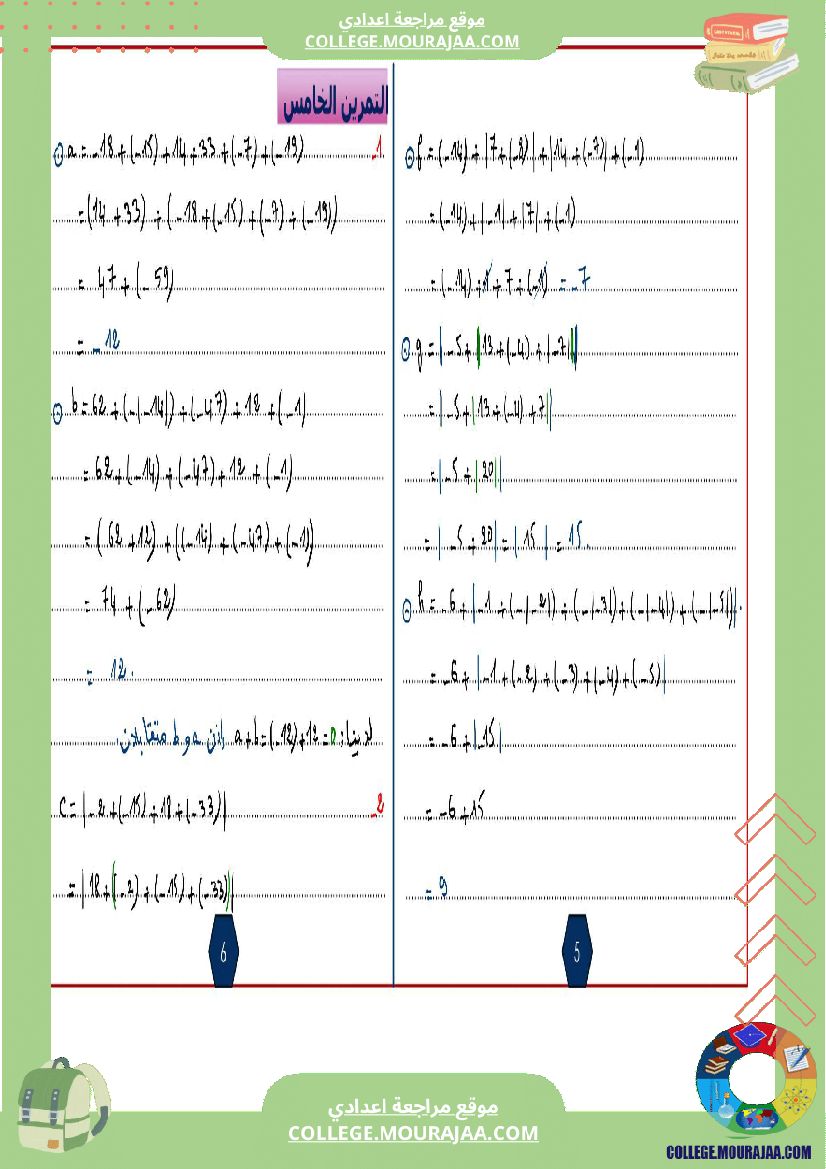 موقع مراجعة اعدادي
COLLEGE.MOURAJAA.COM
f = (-14) + |7 + (-8)| + |14 + (-7)| + (-1)
= (-14) + |-1| + |7| + (-1)
= (-14) + 1 + 7 + (-1) = -7
g = |-5 + |13 + (-4) + |-7|||
= |-5 + |13 + (-4) + 7||
= |-5 + |20||
= |-5 + 20| = |15| = 15.
h = -6 + |-1 + (-|-2|) + (-|-3|) + (-|-4|) + (-|-5|)|.
= -6 + |-1 + (-2) + (-3) + (-4) + (-5)|
= -6 + |-15|
= -6 + 15
= 9
5
التمرين الخامس
1-
a = -18 + (-15) + 14 + 33 + (-7) + (-19)
= (14 + 33) + (-18 + (-15) + (-7) + (-19))
= 47 + (-59)
= -12
b = 62 + (-|-14|) + (-47) + 12 + (-1)
= 62 + (-14) + (-47) + 12 + (-1)
= (62 + 12) + ((-14) + (-47) + (-1))
= 74 + (-62)
= 12.
لدينا: a + b = (-12) + 12 = 0 إذن a و b متقابلان.
2-
c = |-2 + (-15) + 18 + (-33)|
= |18 + (-2) + (-15) + (-33)|
6
موقع مراجعة اعدادي
COLLEGE.MOURAJAA.COM
COLLEGE.MOURAJAA.COM